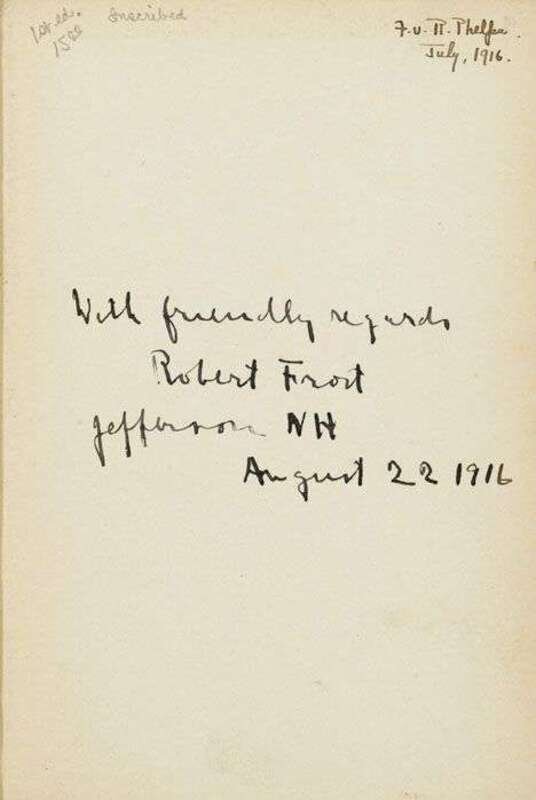 1st ed. Inscribed
15.00
F. v. R. Phelps.
July, 1916.
With friendly regards
Robert Frost
Jefferson NH
August 22 1916